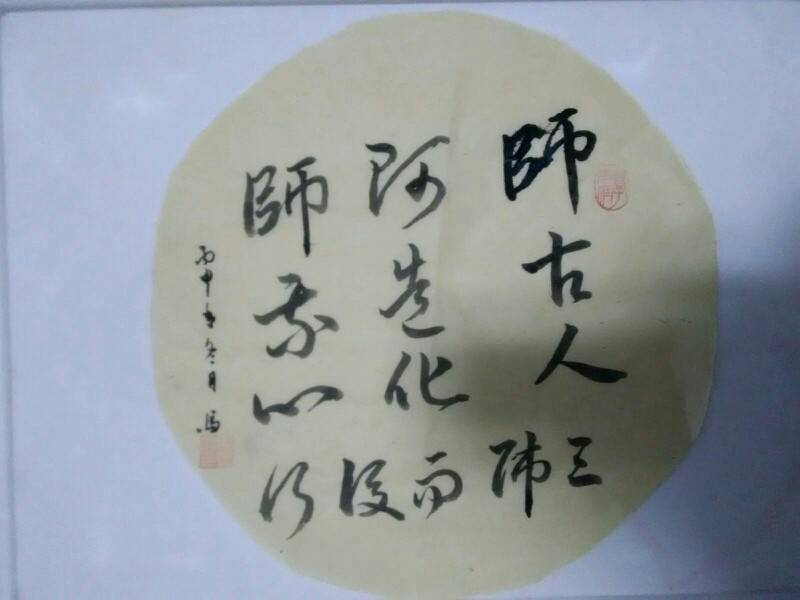 師古人
師造化
師我心
三師而後行
丙申年冬月